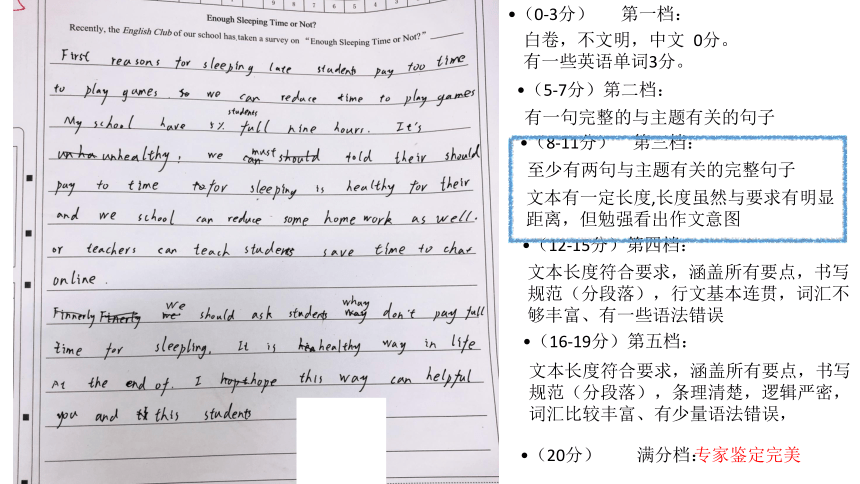 Enough Sleeping Time or Not?
Recently, the English Club of our school has taken a survey on “Enough Sleeping Time or Not?”
First reasons for sleeping late students pay too time
to play games. so we can reduce time to play games
students
My school have 5% full nine hours. It's
must
unha unhealthy, we can should told their should
pay to time to for sleeping is healthy for their
and we school can reduce some homework as well.
or teachers can teach students save time to chat
online.
we whay
Finnerly Finerly we should ask students way don't pay full
time for sleepling. It is hea healthy way in life
At the end of. I hop hope this way can helpful
you and this students
•（0-3分） 第一档：
白卷，不文明，中文 0分。
有一些英语单词3分。
•（5-7分）第二档：
有一句完整的与主题有关的句子
•（8-11分） 第三档：
至少有两句与主题有关的完整句子
文本有一定长度,长度虽然与要求有明显
距离，但勉强看出作文意图
•（12-15分）第四档：
文本长度符合要求，涵盖所有要点，书写
规范（分段落），行文基本连贯，词汇不
够丰富、有一些语法错误
•（16-19分）第五档：
文本长度符合要求，涵盖所有要点，书写
规范（分段落），条理清楚，逻辑严密，
词汇比较丰富、有少量语法错误，
•（20分） 满分档：专家鉴定完美